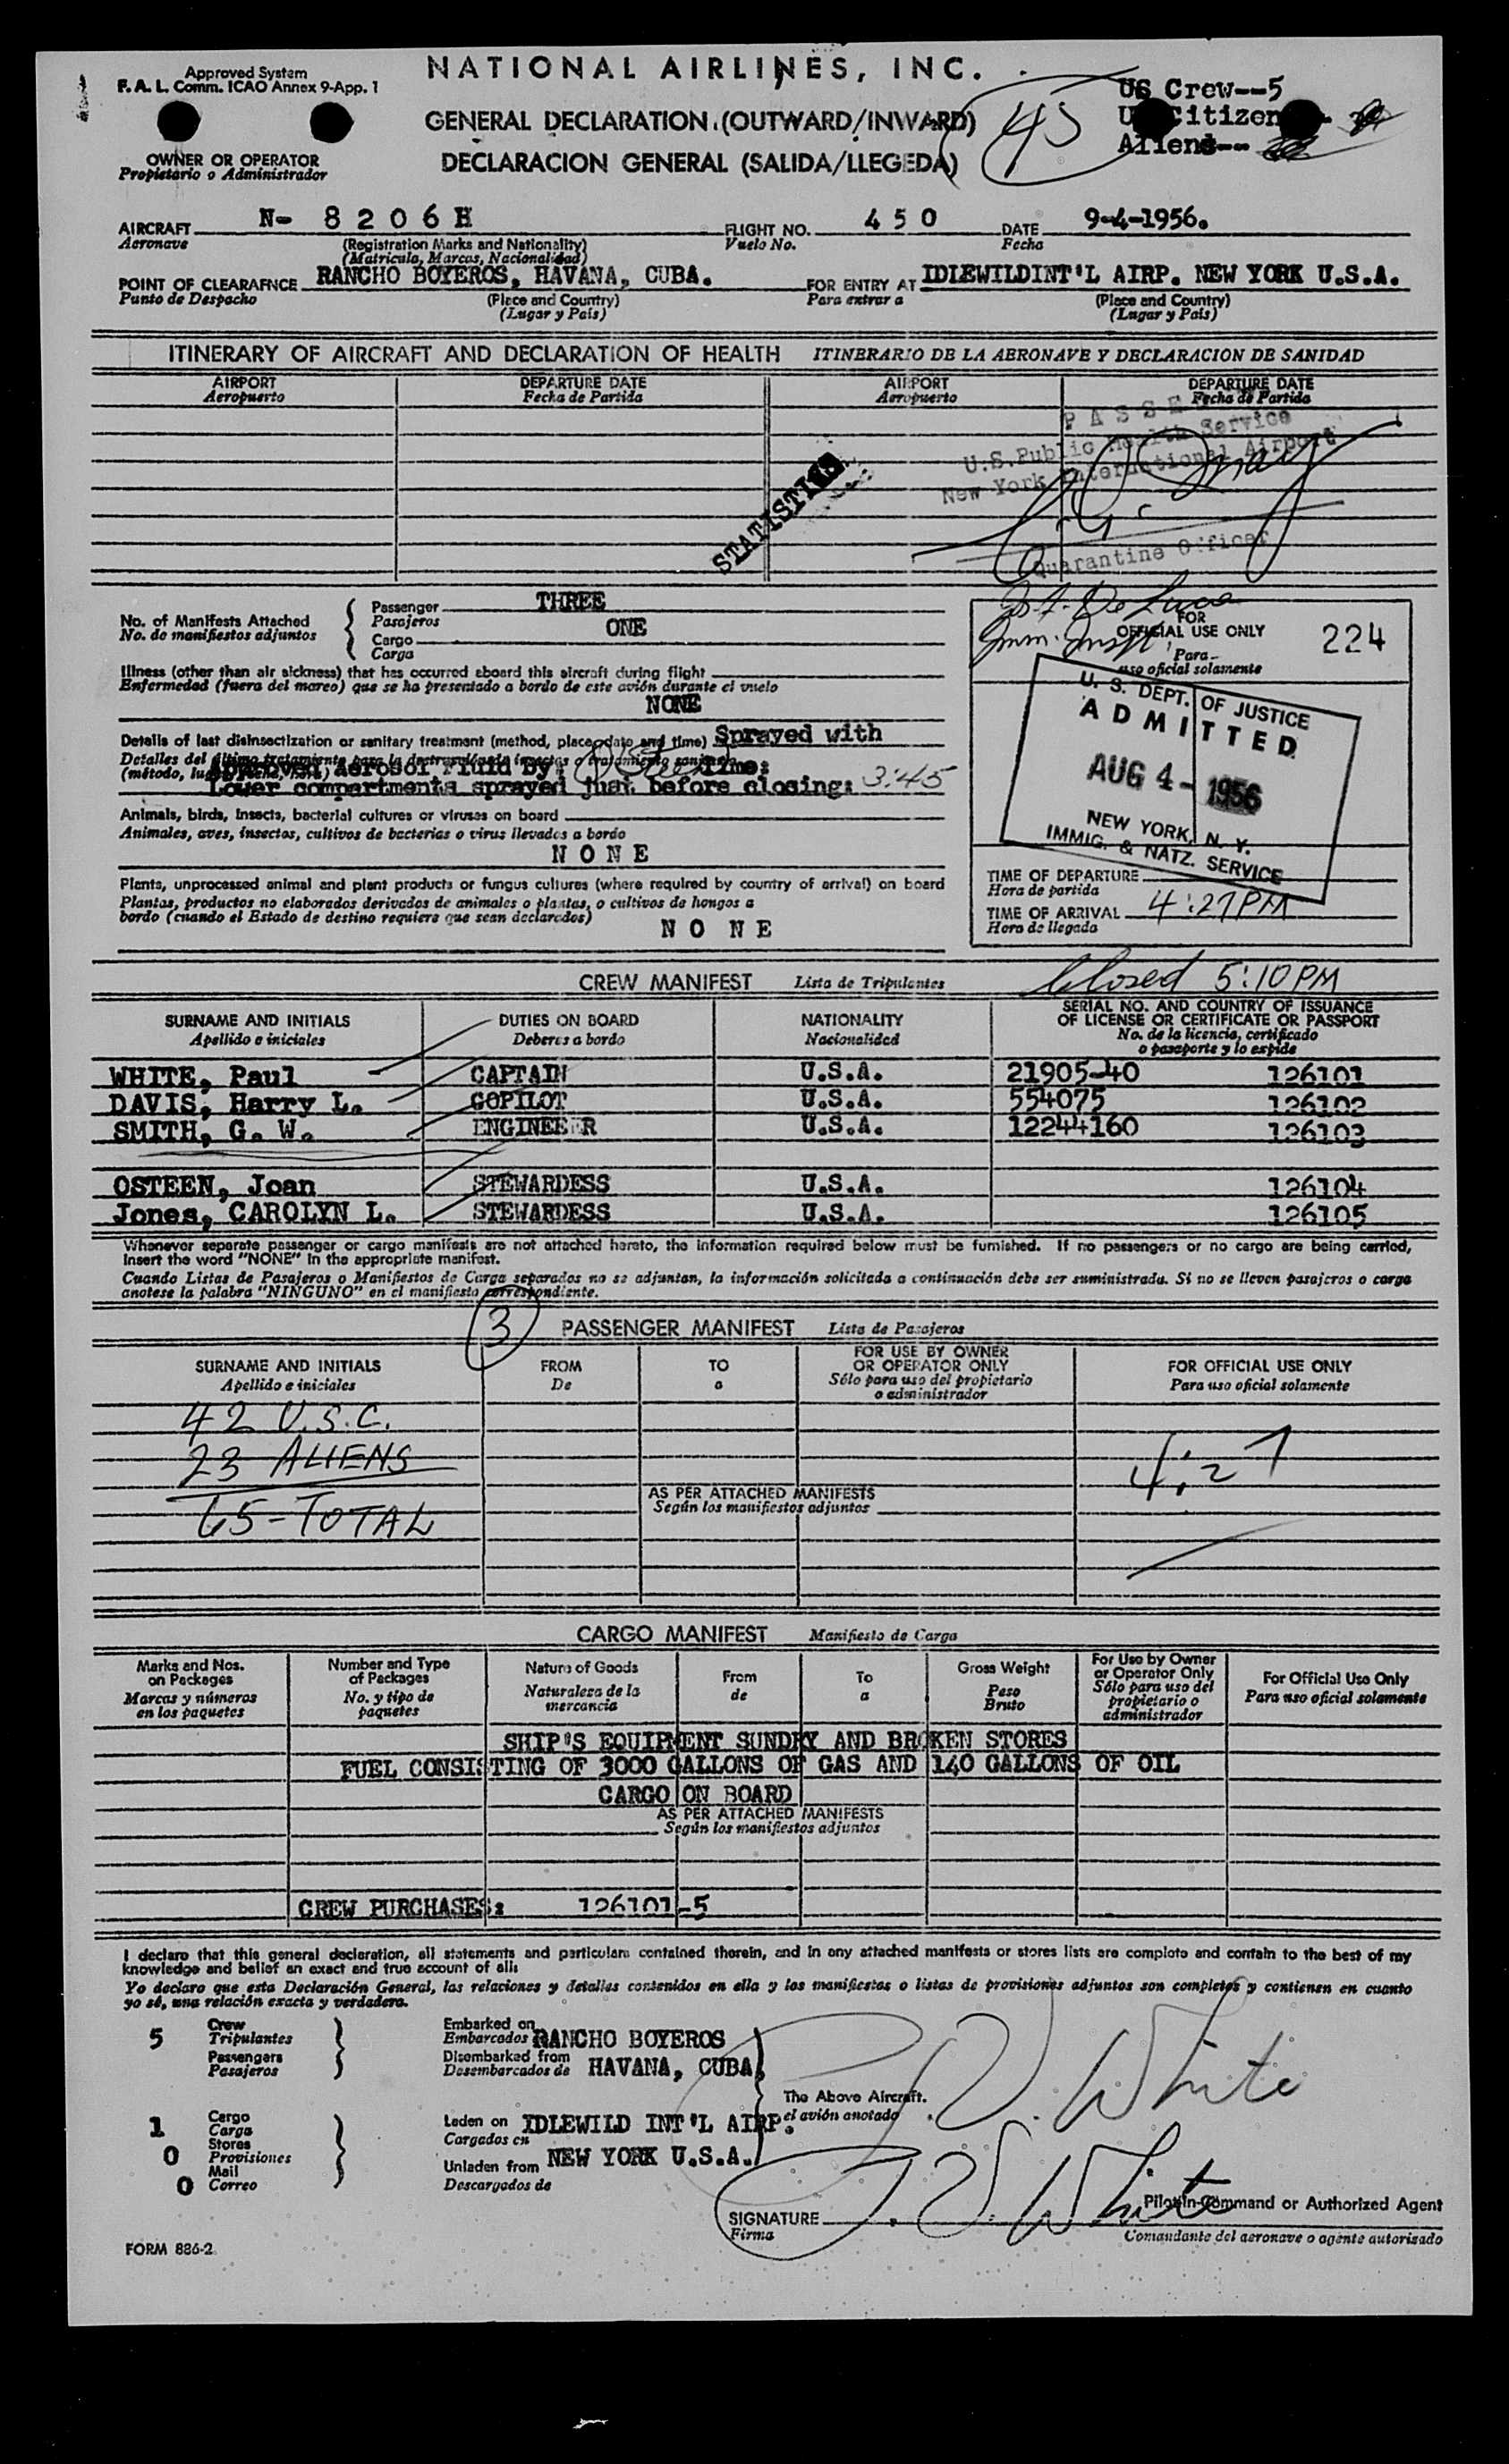 Approved System
F. A. L. Comm. ICAO Annex 9-App. 1
NATIONAL AIRLINES, INC.
GENERAL DECLARATION (OUTWARD/INWARD)
DECLARACION GENERAL (SALIDA/LLEGEDA)
45
US Crew--5
Citizen
Aliens--
OWNER OR OPERATOR
Propietario o Administrador
AIRCRAFT N- 8 2 0 6 H FLIGHT NO. 4 5 0 DATE 9-4-1956.
Aeronave Vuelo No. Fecha
(Registration Marks and Nationality)
(Matricula, Marcas, Nacionalidad)
POINT OF CLEARAFNCE RANCHO BOYEROS, HAVANA, CUBA. FOR ENTRY AT IDLEWILDINT'L AIRP. NEW YORK U.S.A.
Punto de Despacho (Place and Country) Para entrar a (Place and Country)
(Lugar y País) (Lugar y País)
ITINERARY OF AIRCRAFT AND DECLARATION OF HEALTH ITINERARIO DE LA AERONAVE Y DECLARACION DE SANIDAD
AIRPORT DEPARTURE DATE AIRPORT DEPARTURE DATE
Aeropuerto Fecha de Partida Aeropuerto Fecha de Partida
U.S. Public Health Service
New York International Airport
Quarantine Officer
STATISTICS
No. of Manifests Attached
No. de manifiestos adjuntos
Passenger THREE
Pasajeros
Cargo ONE
Carga
Illness (other than air sickness) that has occurred aboard this aircraft during flight
Enfermedad (fuera del mareo) que se ha presentado a bordo de este avión durante el vuelo
NONE
Details of last disinsectization or sanitary treatment (method, place, date and time) Sprayed with
Approved Aerosol Fluid By: Time:
Lower compartments sprayed just before closing: 3:45
Animals, birds, insects, bacterial cultures or viruses on board
Animales, aves, insectos, cultivos de bacterias o virus llevados a bordo
N O N E
Plants, unprocessed animal and plant products or fungus cultures (where required by country of arrival) on board
Plantas, productos no elaborados derivados de animales o plantas, o cultivos de hongos a
bordo (cuando el Estado de destino requiera que sean declarados)
N O N E
FOR
OFFICIAL USE ONLY
Para
uso oficial solamente
224
U. S. DEPT. OF JUSTICE
ADMITTED
AUG 4 - 1956
NEW YORK, N. Y.
IMMIG. & NATZ. SERVICE
TIME OF DEPARTURE
Hora de partida
TIME OF ARRIVAL 4:27PM
Hora de llegada
CREW MANIFEST Lista de Tripulantes Closed 5:10PM
SURNAME AND INITIALS DUTIES ON BOARD NATIONALITY SERIAL NO. AND COUNTRY OF ISSUANCE
OF LICENSE OR CERTIFICATE OR PASSPORT
Apellido e iniciales Deberes a bordo Nacionalidad No. de la licencia, certificado
o pasaporte y lo expide
WHITE, Paul CAPTAIN U.S.A. 21905-40 126101
DAVIS, Harry L. COPILOT U.S.A. 554075 126102
SMITH, G. W. ENGINEER U.S.A. 12244160 126103
OSTEEN, Joan STEWARDESS U.S.A. 126104
Jones, CAROLYN L. STEWARDESS U.S.A. 126105
Whenever separate passenger or cargo manifests are not attached hereto, the information required below must be furnished. If no passengers or no cargo are being carried,
insert the word "NONE" in the appropriate manifest.
Cuando Listas de Pasajeros o Manifiestos de Carga separados no se adjuntan, la información solicitada a continuación debe ser suministrada. Si no se lleven pasajeros o carga
anotese la palabra "NINGUNO" en el manifiesto correspondiente.
3 PASSENGER MANIFEST Lista de Pasajeros
SURNAME AND INITIALS FROM TO FOR USE BY OWNER OR OPERATOR ONLY FOR OFFICIAL USE ONLY
Apellido e iniciales De a Sólo para uso del propietario o administrador Para uso oficial solamente
42 U.S.C.
23 ALIENS
65-TOTAL
4:27
AS PER ATTACHED MANIFESTS
Según los manifiestos adjuntos
CARGO MANIFEST Manifiesto de Carga
Marks and Nos. on Packages Number and Type of Packages Nature of Goods From To Gross Weight For Use by Owner or Operator Only For Official Use Only
Marcas y números en los paquetes No. y tipo de paquetes Naturaleza de la mercancia de a Peso Bruto Sólo para uso del propietario o administrador Para uso oficial solamente
SHIP'S EQUIPMENT SUNDRY AND BROKEN STORES
FUEL CONSISTING OF 3000 GALLONS OF GAS AND 140 GALLONS OF OIL
CARGO ON BOARD
AS PER ATTACHED MANIFESTS
Según los manifiestos adjuntos
CREW PURCHASES: 126101-5
I declare that this general declaration, all statements and particulars contained therein, and in any attached manifests or stores lists are complete and contain to the best of my
knowledge and belief an exact and true account of all:
Yo declaro que esta Declaración General, las relaciones y detalles contenidos en ella y los manifiestos o listas de provisiones adjuntos son completos y contienen en cuanto
yo sé, una relación exacta y verdadera.
5 Crew
Tripulantes
Passengers
Pasajeros
Embarked on
Embarcados RANCHO BOYEROS
Disembarked from
Desembarcados de HAVANA, CUBA
The Above Aircraft.
el avión anotado
1 Cargo
Carga
Stores
0 Provisiones
Mail
0 Correo
Laden on IDLEWILD INT'L AIRP.
Cargados en
Unladen from NEW YORK U.S.A.
Descargados de
White
SIGNATURE White Pilot-in-Command or Authorized Agent
Firma Comandante del aeronave o agente autorizado
FORM 886-2